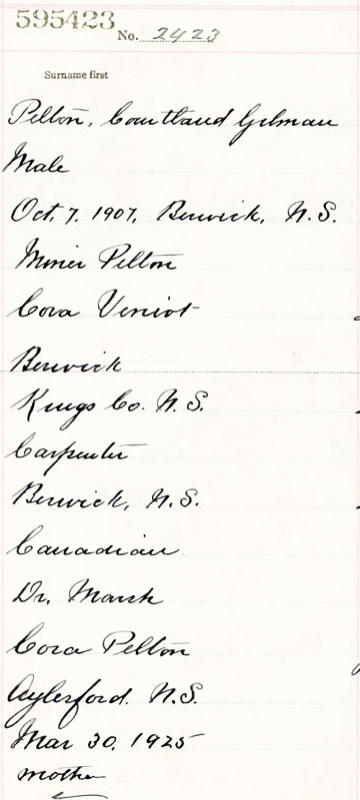 595423
No. 2423
Surname first
Pelton, Courtland Gilman
Male
Oct. 7. 1907, Berwick, N.S.
Minier Pelton
Cora Veniot
Berwick
Kings Co. N.S.
Carpenter
Berwick, N.S.
Canadian
Dr. Marsh
Cora Pelton
Aylesford. N.S.
Mar 30, 1925
mother